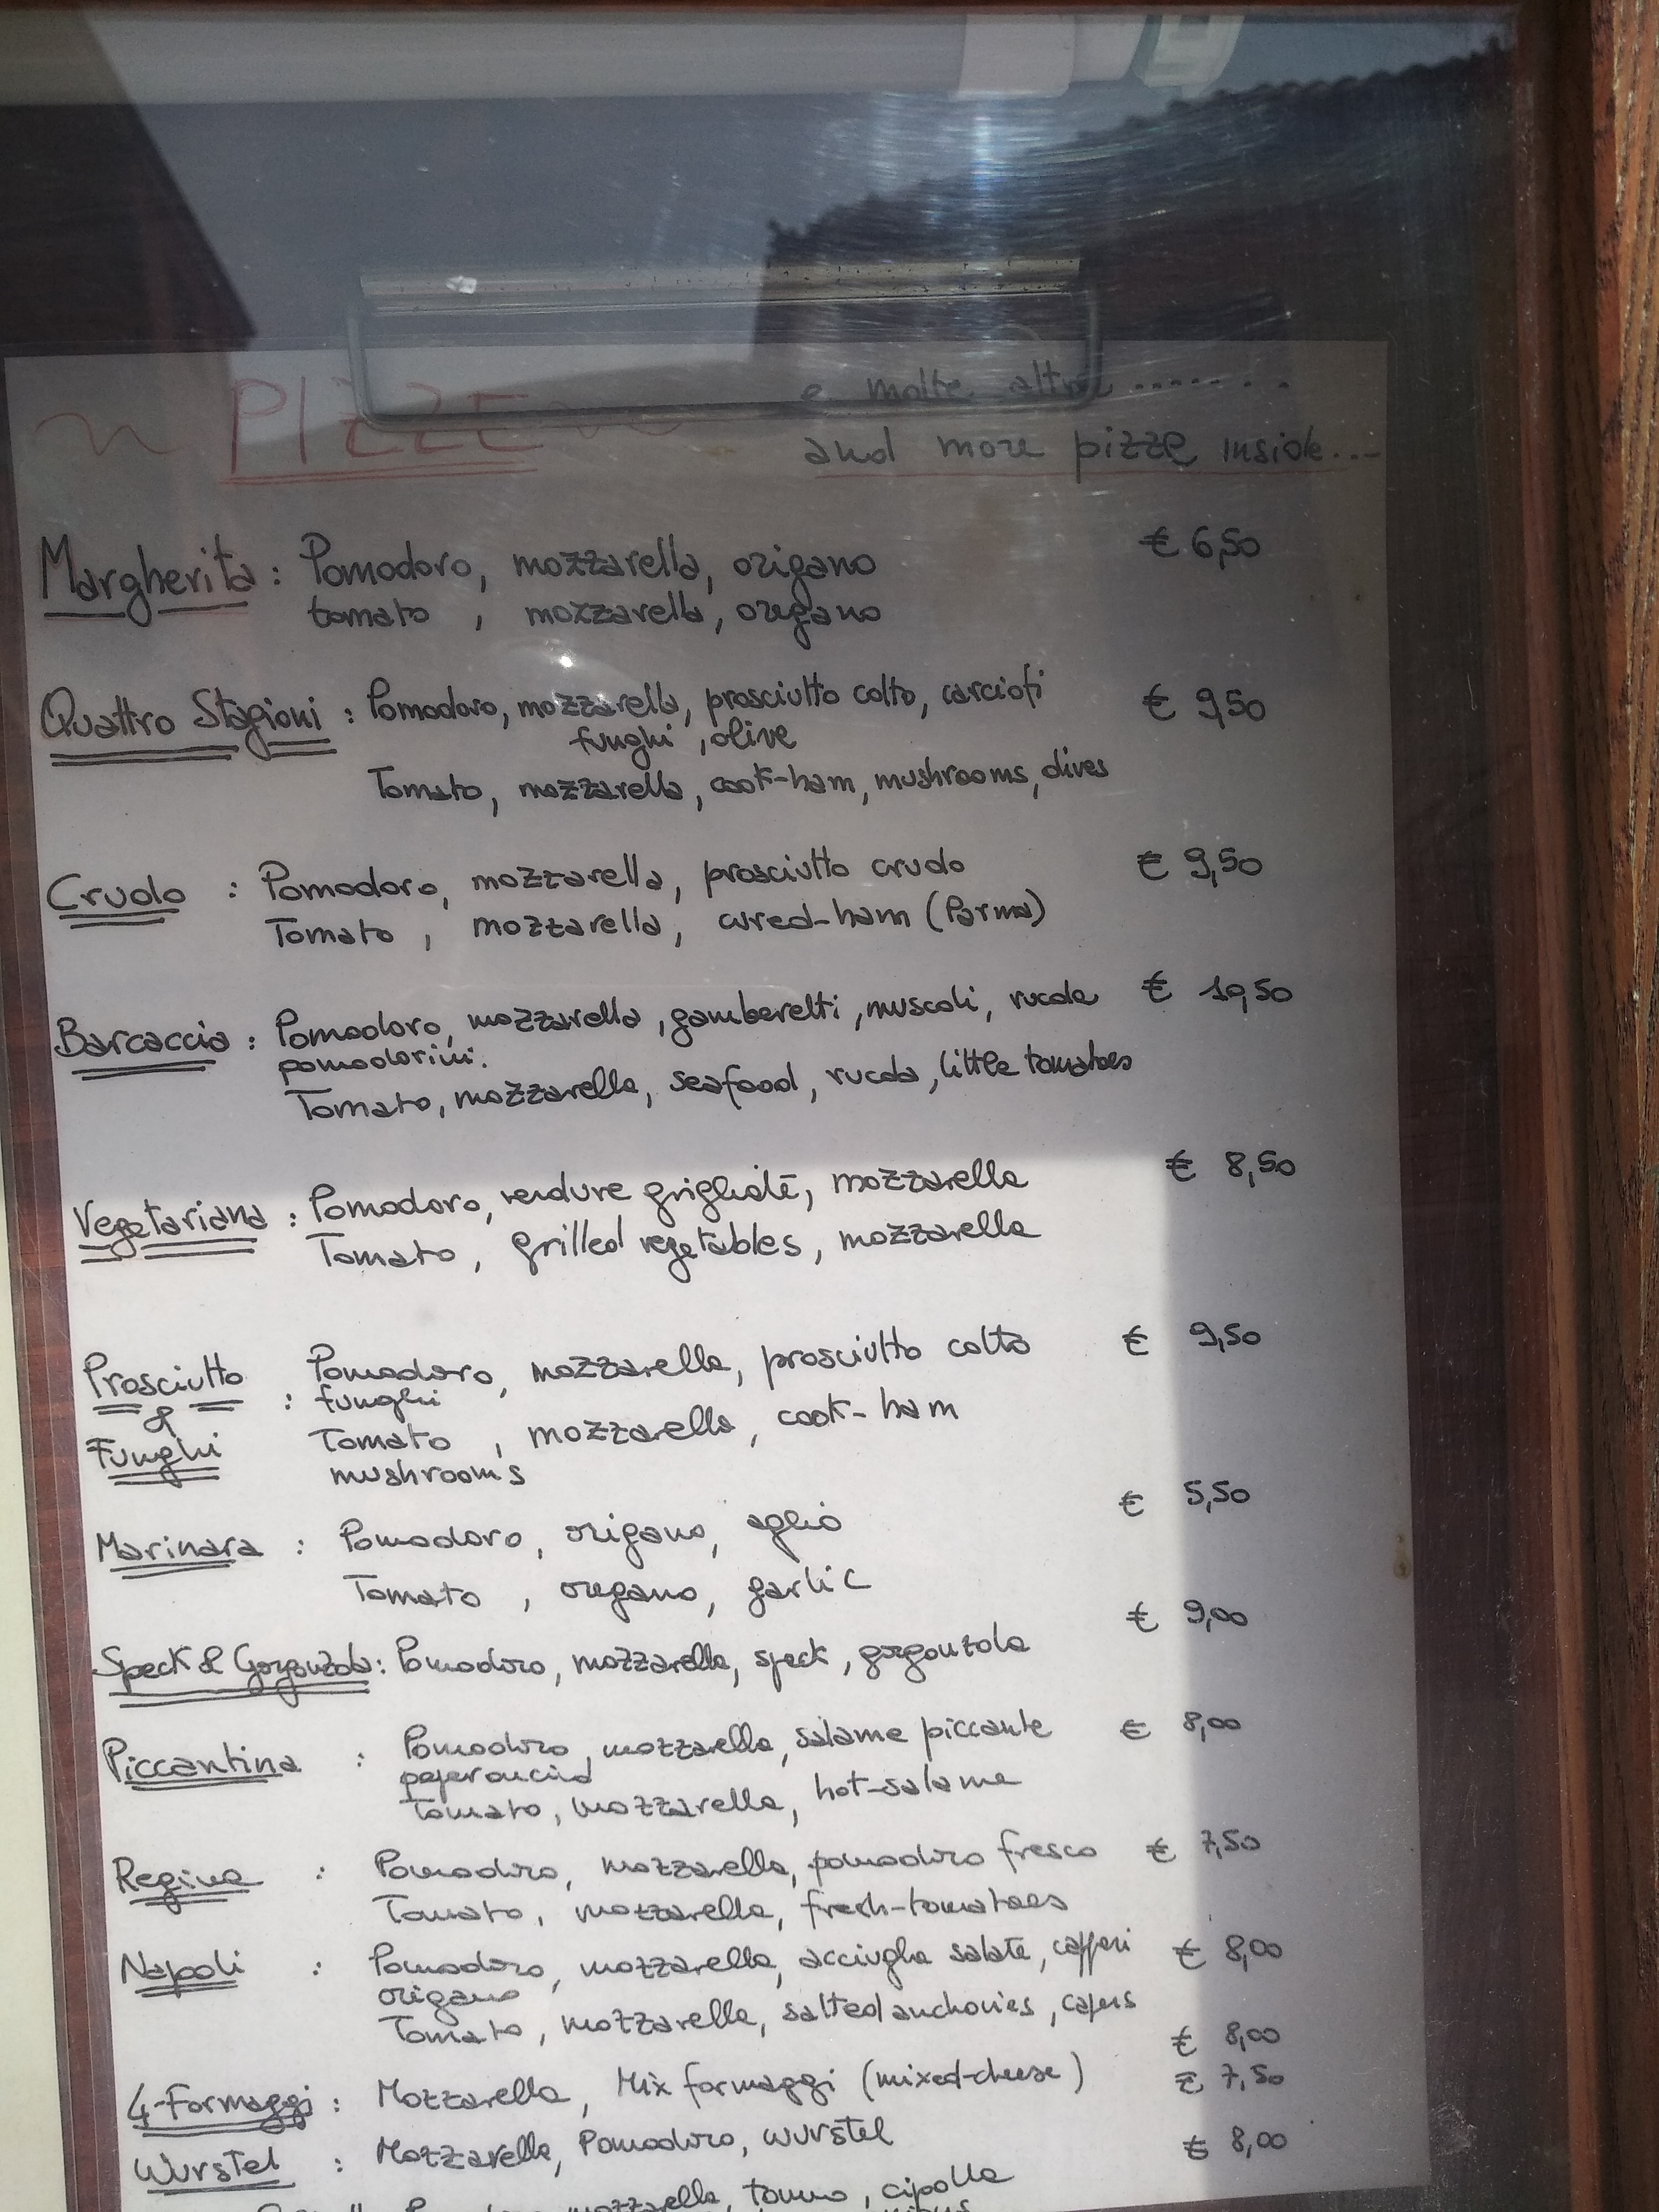 ~ PIZZE ~
e molte altre ........
and more pizze inside...
Margherita : Pomodoro, mozzarella, origano € 6,50
tomato , mozzarella, oregano
Quattro Stagioni : Pomodoro, mozzarella, prosciutto cotto, carciofi € 9,50
funghi , olive
Tomato, mozzarella, cook-ham, mushrooms, olives
Crudo : Pomodoro, mozzarella, prosciutto crudo € 9,50
Tomato , mozzarella, cured-ham (Parma)
Barcaccia : Pomodoro, mozzarella, gamberetti, muscoli, rucola € 10,50
pomodorini.
Tomato, mozzarella, seafood, rucola, little tomatoes
Vegetariana : Pomodoro, verdure grigliate, mozzarella € 8,50
Tomato , grilled vegetables, mozzarella
Prosciutto & Funghi : Pomodoro, mozzarella, prosciutto cotto € 9,50
funghi
Tomato , mozzarella, cook-ham
mushroom's
Marinara : Pomodoro, origano, aglio € 5,50
Tomato , oregano, garlic
Speck & Gorgonzola : Pomodoro, mozzarella, speck, gorgonzola € 9,00
Piccantina : Pomodoro, mozzarella, salame piccante € 8,00
Tomato, mozzarella, hot-salame
Regina : Pomodoro, mozzarella, pomodoro fresco € 7,50
Tomato, mozzarella, fresh-tomatoes
Napoli : Pomodoro, mozzarella, acciughe salate, capperi € 8,00
origano
Tomato, mozzarella, salted anchovies, capers
4-Formaggi : Mozzarella, Mix formaggi (mixed-cheese) € 8,00
Wurstel : Mozzarella, Pomodoro, wurstel € 7,50
mozzarella, tonno, cipolla € 8,00